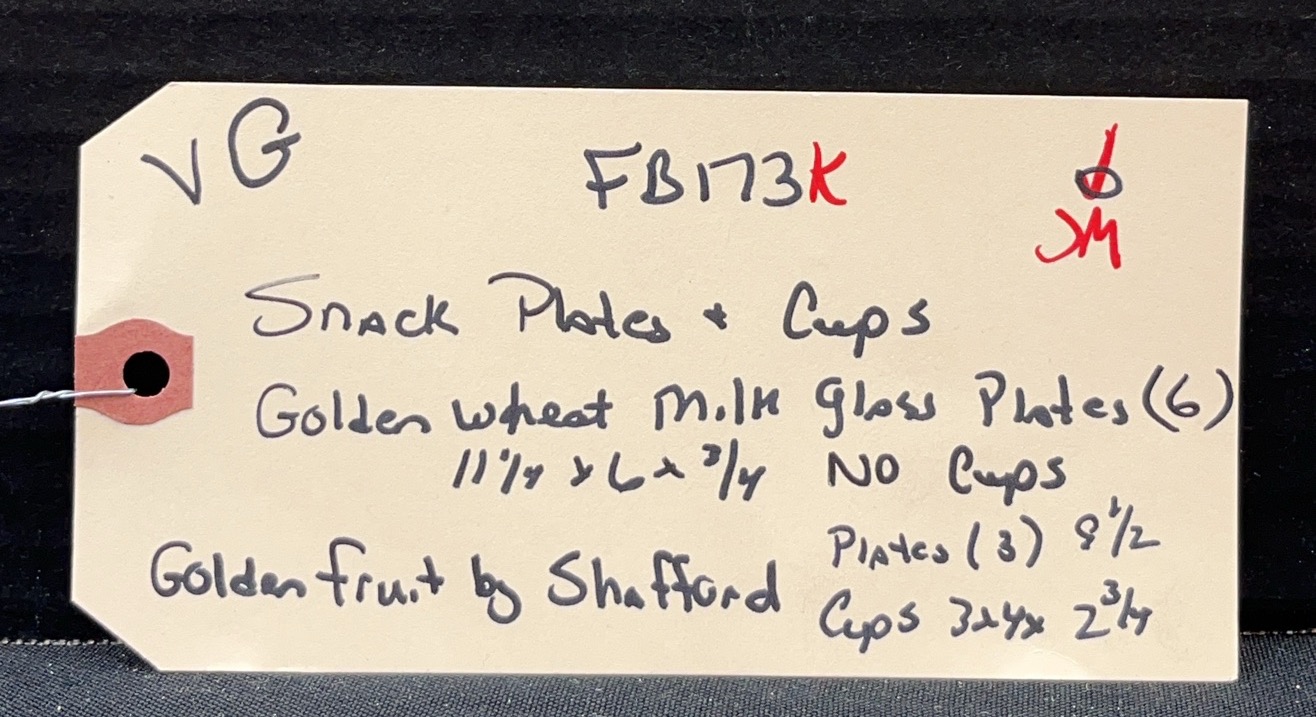 VG FB173K
JM
Snack Plates + Cups
Golden Wheat Milk Glass Plates (6)
11 1/4 x 6 x 3/4 NO Cups
Golden fruit by Shafford Plates (3) 8 1/2
Cups 3x4x 2 3/4